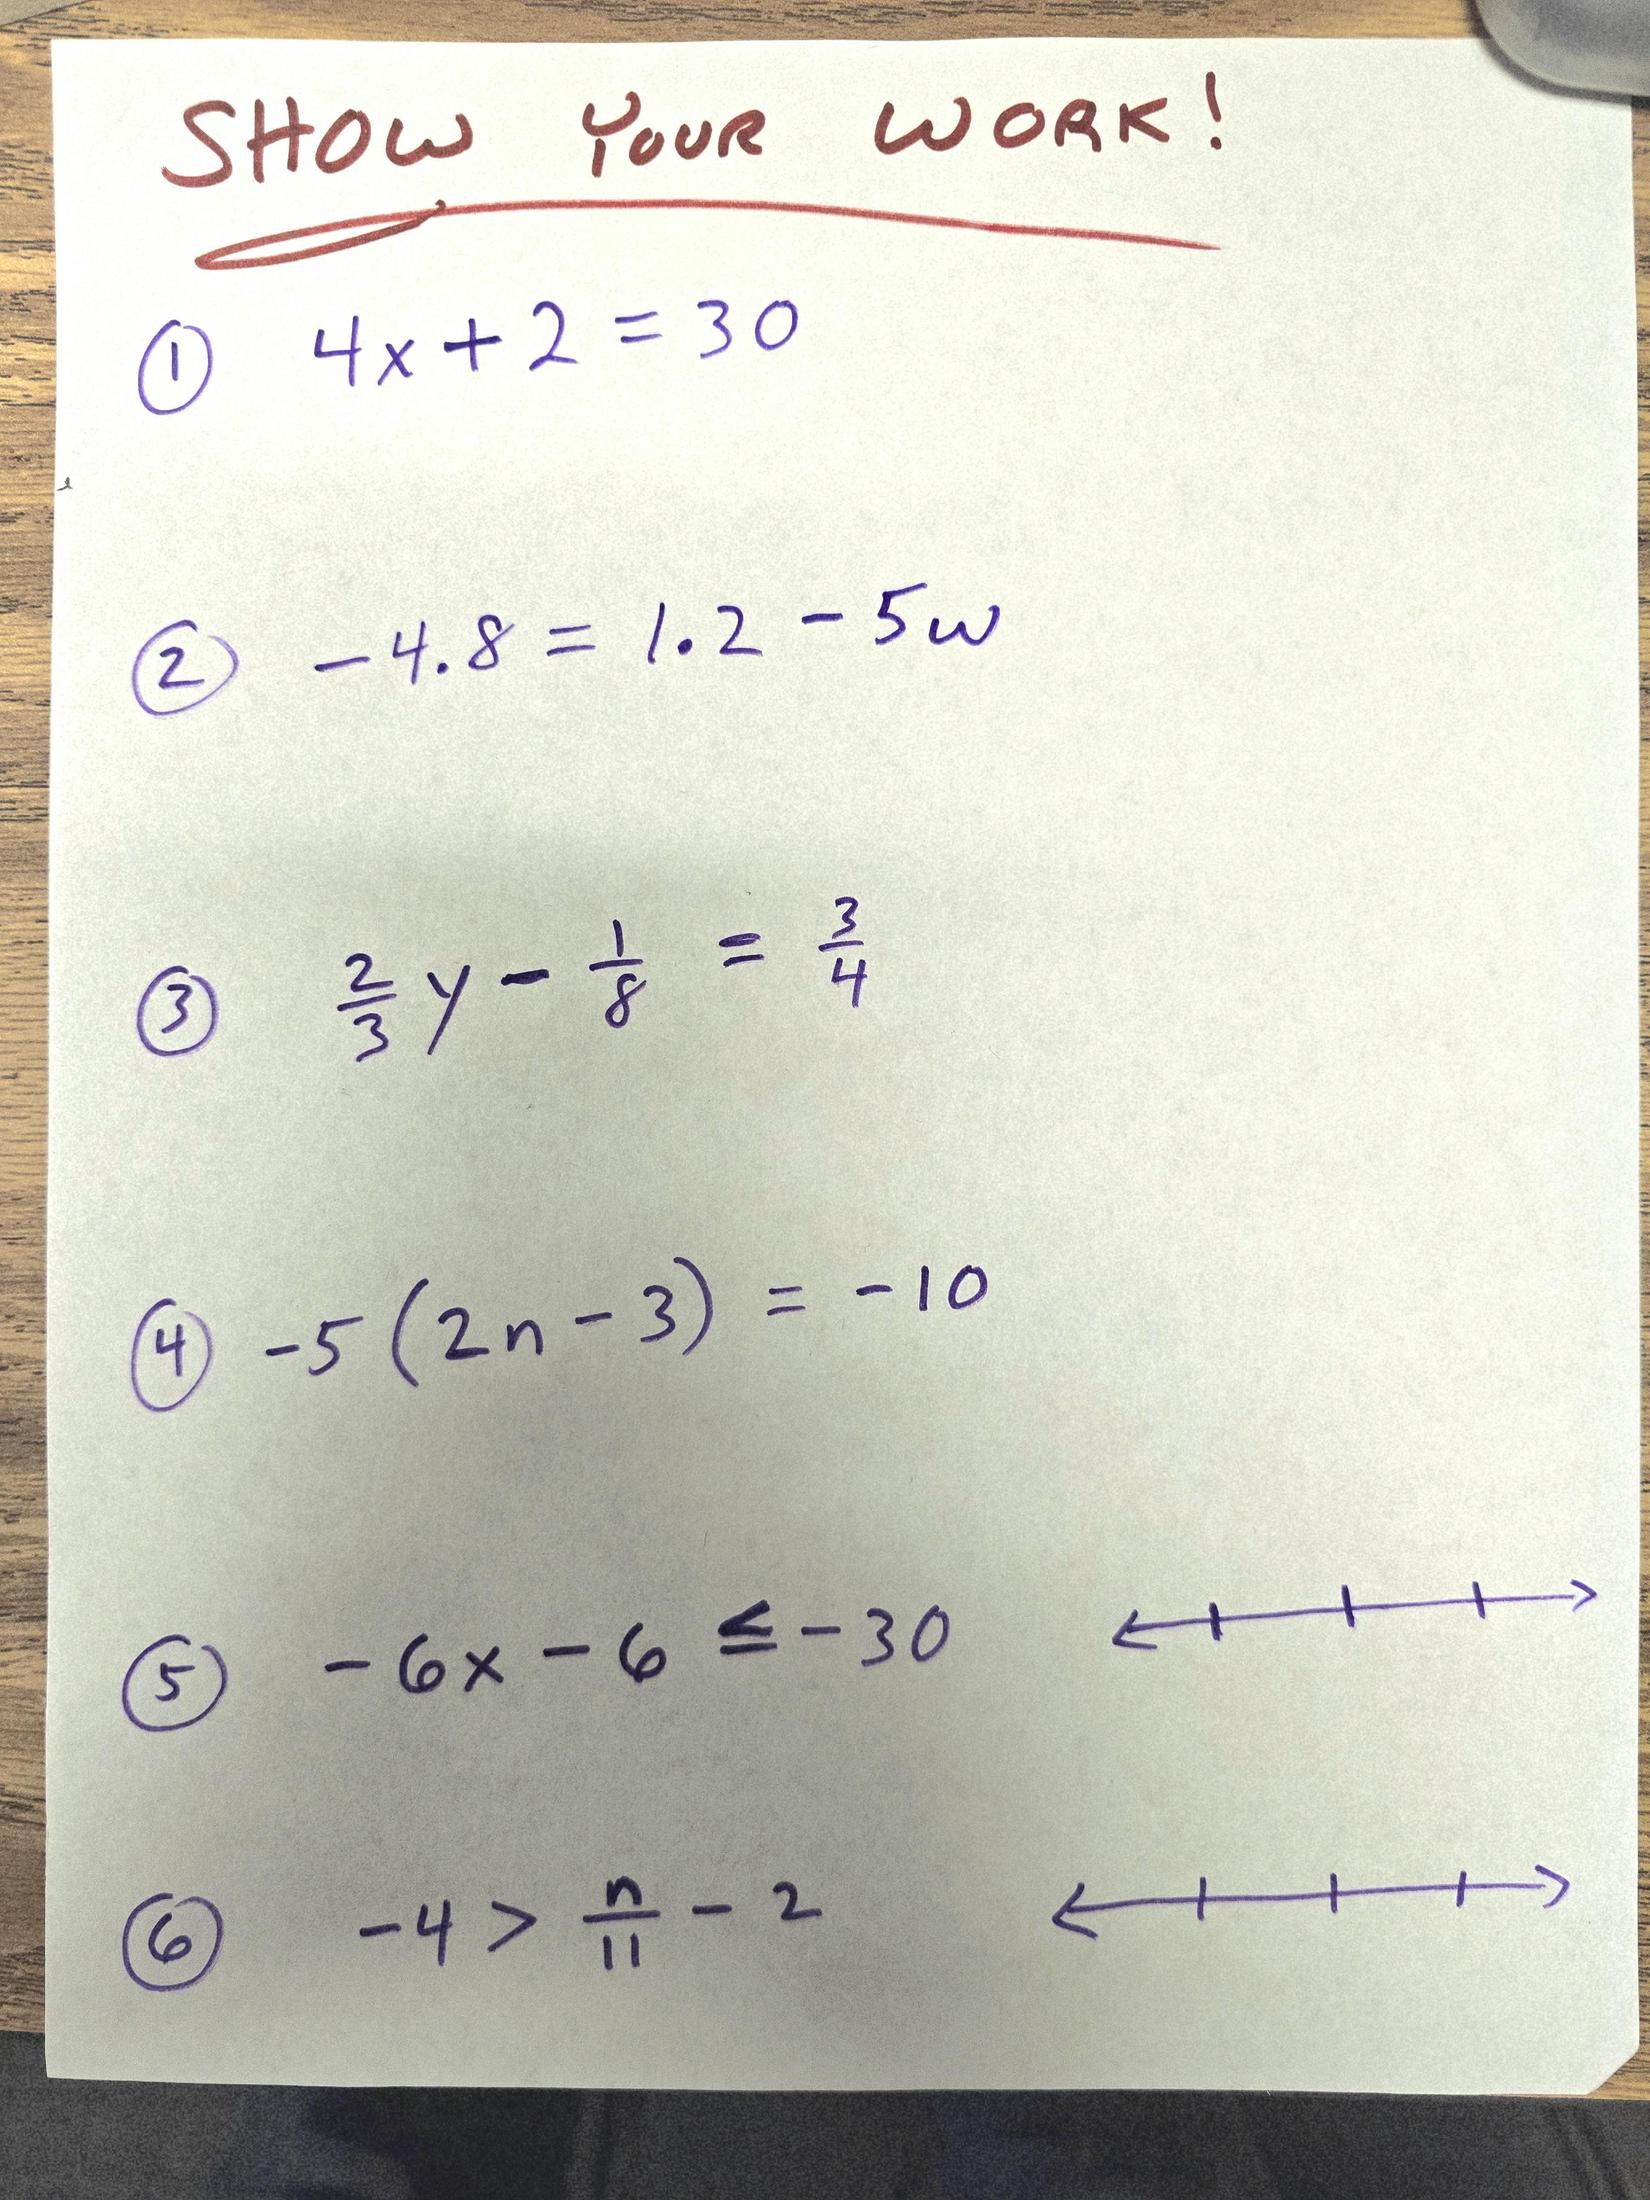 SHOW YOUR WORK!
① 4x + 2 = 30
② -4.8 = 1.2 - 5w
③ 2/3 y - 1/8 = 3/4
④ -5(2n - 3) = -10
⑤ -6x - 6 ≤ -30
⑥ -4 > n/11 - 2